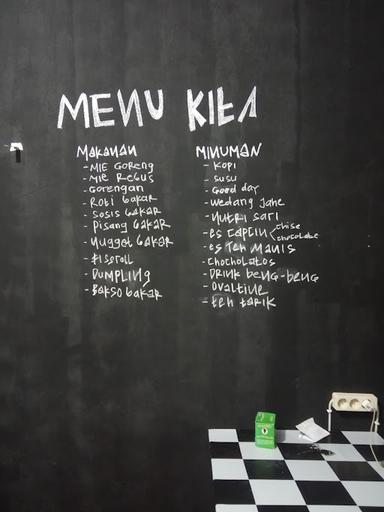 MENU KITA
MAKANAN
- MIE GORENG
- MIE REBUS
- GORENGAN
- ROTI BAKAR
- SOSIS BAKAR
- PISANG BAKAR
- NUGGET BAKAR
- DUMPLING
- BAKSO BAKAR
MINUMAN
- KOPI
- SUSU
- GOOD DAY
- WEDANG JAHE
- NUTRI SARI
- ES CAPCIN < CHISE
CHOCOLATE
- ES TEH MANIS
- CHOCHOLATOS
- DRINK BENG-BENG
- OVALTINE
- TEH TARIK